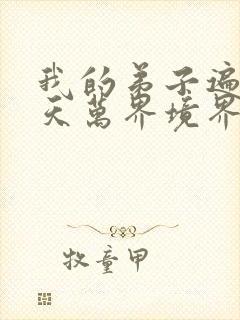 我的弟子遍
天萬界境界
牧童甲